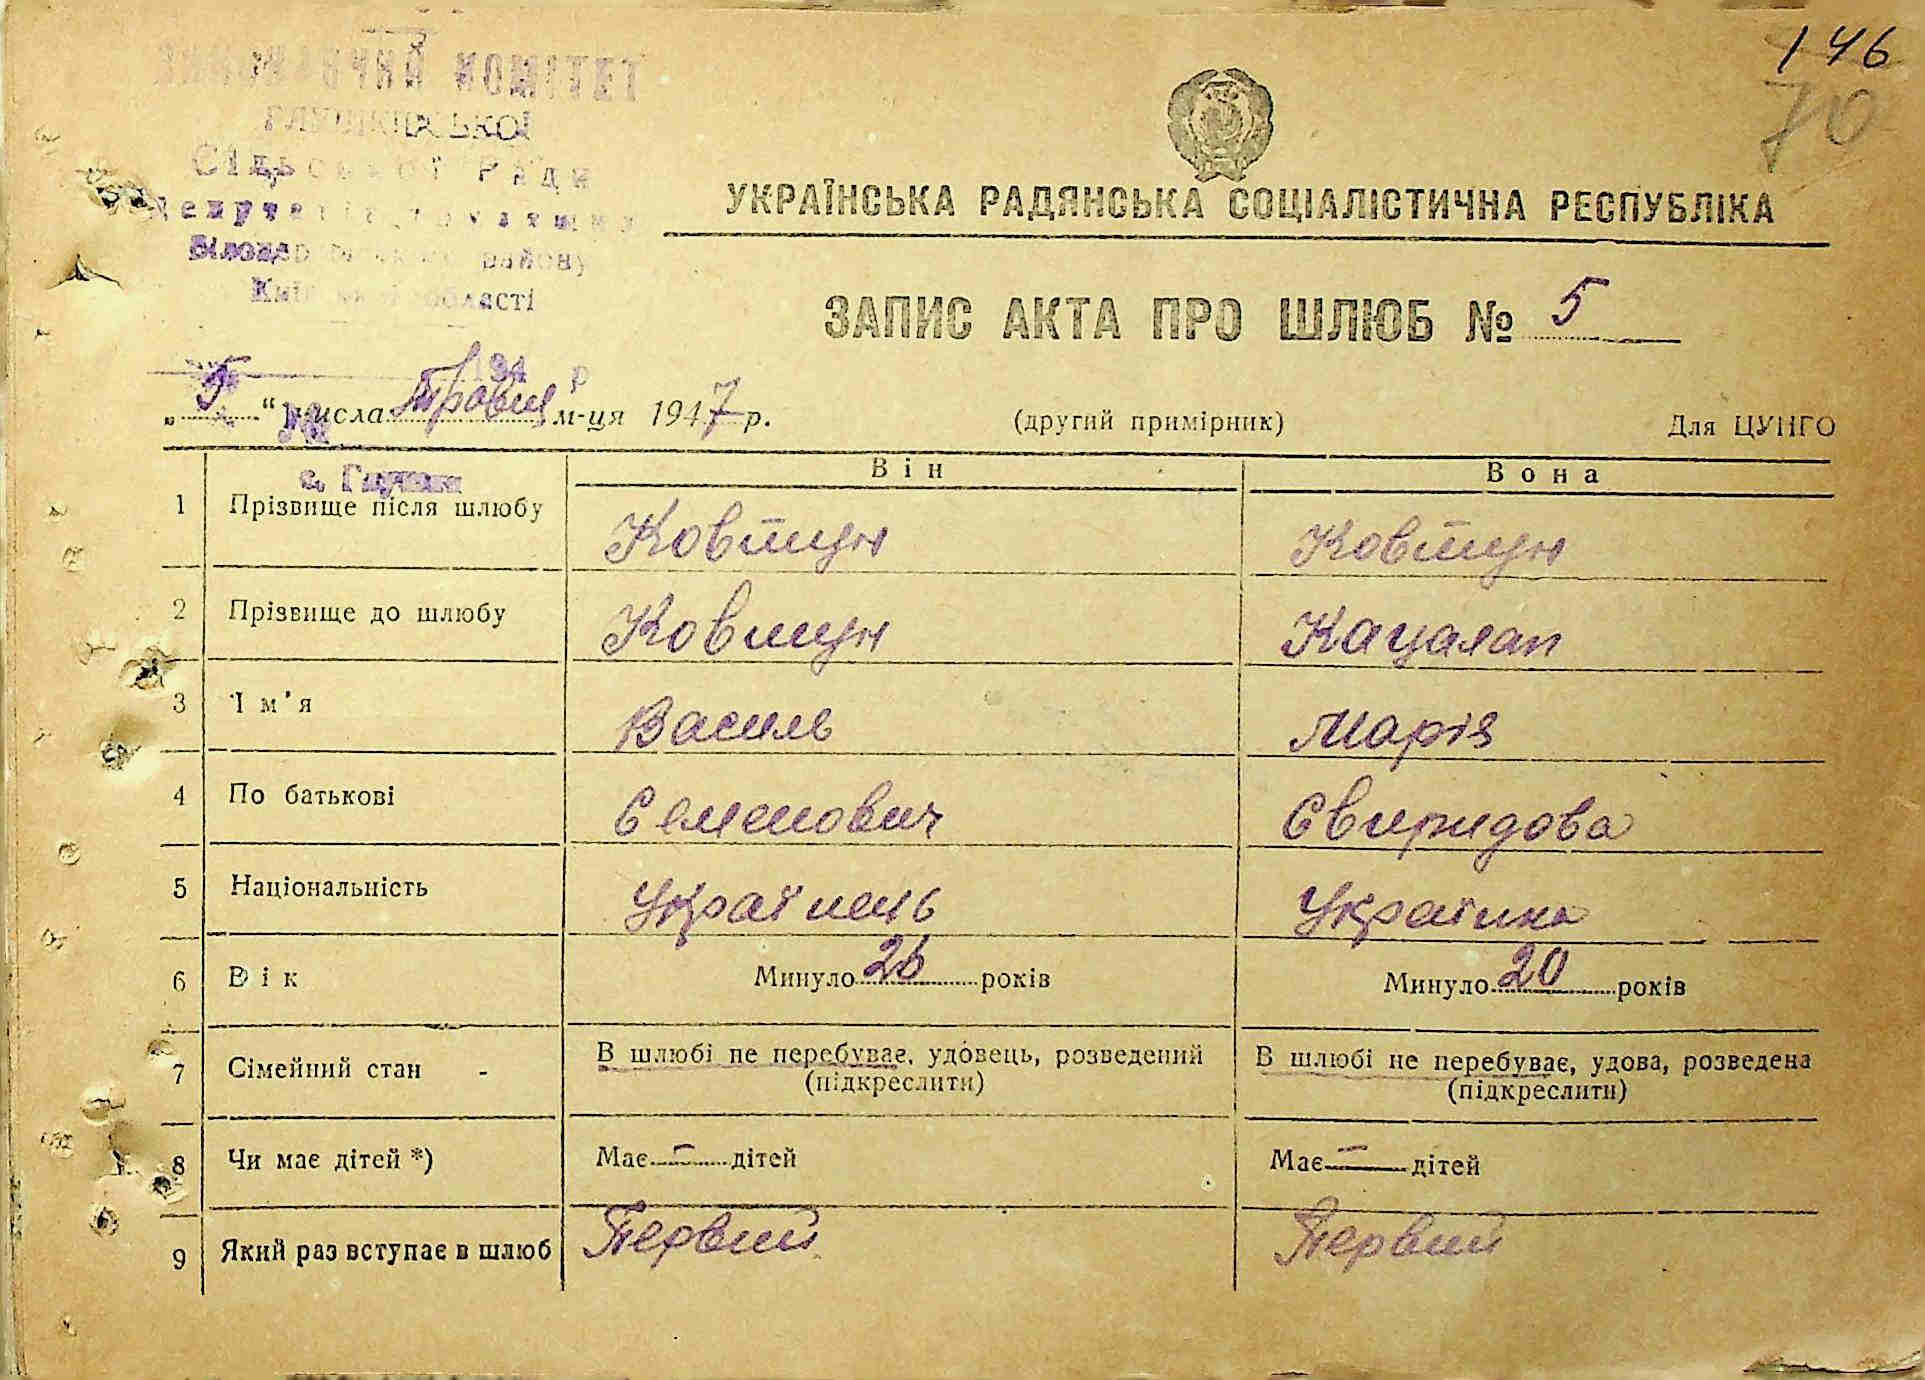 146
70
КОМІТЕТ
Сільської Ради
області
УКРАЇНСЬКА РАДЯНСЬКА СОЦІАЛІСТИЧНА РЕСПУБЛІКА
ЗАПИС АКТА ПРО ШЛЮБ № 5
194 р
„5“ числа Травня м-ця 1947 р.
(другий примірник)
Для ЦУНГО
Він
Вона
1 Прізвище після шлюбу Ковтун Ковтун
2 Прізвище до шлюбу Ковтун Кацалап
3 Ім'я Василь Марія
4 По батькові Семенович Свиридова
5 Національність Українець Українка
6 Вік Минуло 26 років Минуло 20 років
7 Сімейний стан - В шлюбі не перебуває, удовець, розведений В шлюбі не перебуває, удова, розведена
(підкреслити) (підкреслити)
8 Чи має дітей *) Має — дітей Має — дітей
9 Який раз вступає в шлюб Первий Первий